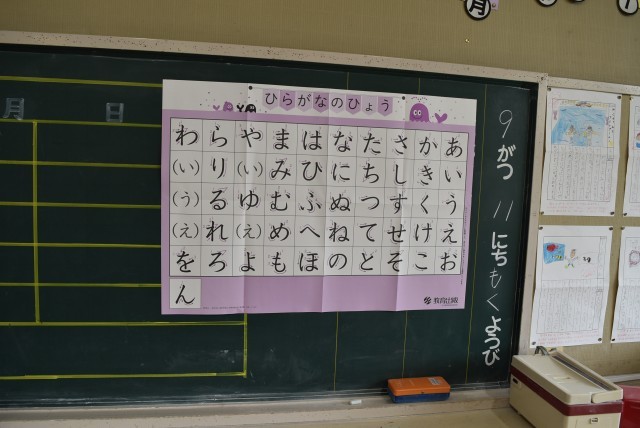 月
月 日
ひらがなのひょう
わ ら や ま は な た さ か あ
(い) り (い) み ひ に ち し き い
(う) る ゆ む ふ ぬ つ す く う
(え) れ (え) め へ ね て せ け え
を ろ よ も ほ の と そ こ お
ん
教育出版
9がつ11にちもくようび